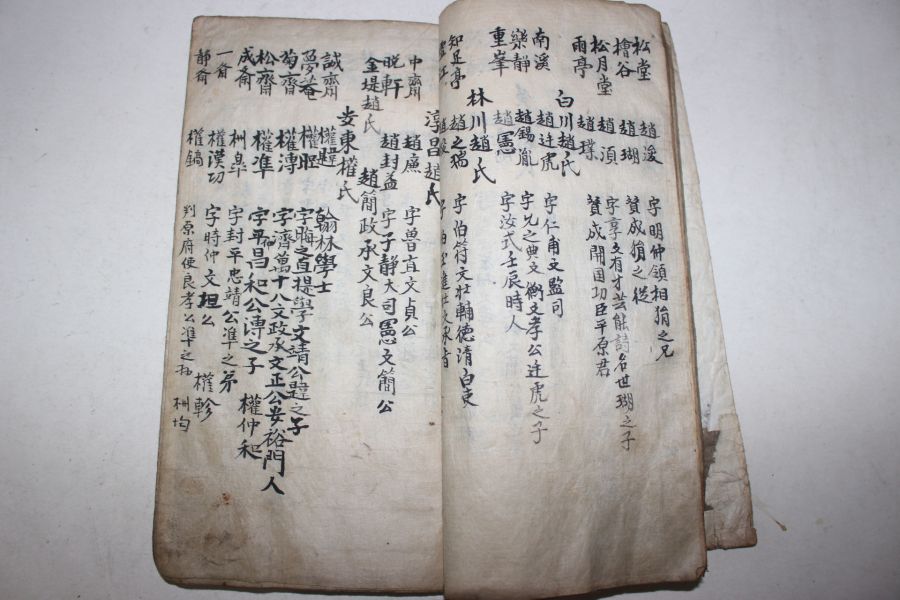 松堂 趙浚 字明仲領相狷之兄
檜谷 趙瑚 贊成狷之從
松月堂 趙須 字亨父有才芸能詩名世瑚之子
雨亭 趙璞 贊成開国功臣平原君
白川趙氏
南溪 趙廷虎 字仁甫文監司
樂靜 趙錫胤 字允之典文衡文孝公廷虎之子
重峯 趙憲 字汝式壬辰時人
林川趙氏
知足亭 趙之瑞 字伯符文壮輔德清白吏
淳昌趙氏
中齋 趙廉 字魯直文貞公
晩軒 趙封益 字子靜大司憲文簡公
金堤趙氏 趙簡政承文良公
安東權氏
誠齋 權韙 翰林學士
夢菴 權㫜 字晦之直提學文靖公韙之子
菊齋 權溥 字濟萬十八文政承文正公安裕門人
松齋 權準 字平仲昌和公溥之子 權仲和
成齋 權皐 字封平忠靖公準之弟
一齋 權漢功 字時仲文坦公 權軫
靜齋 權鎬 判原府使良孝公準之孫 權均